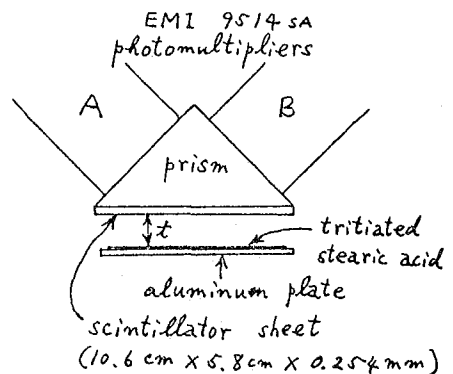 EMI 9514 SA
photomultipliers
A
B
prism
t
tritiated
stearic acid
aluminum plate
scintillator sheet
(10.6 cm X 5.8 cm X 0.254 mm)